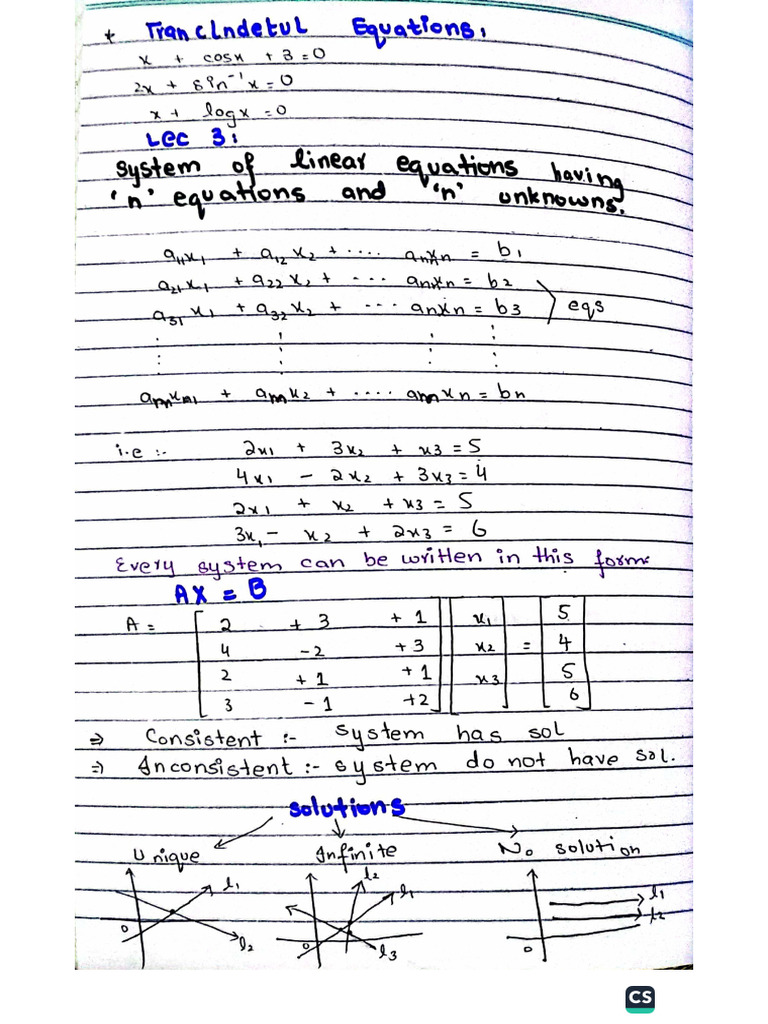 * Tranclndetul Equations,
x + cosx + 3 = 0
2x + sin⁻¹x = 0
x + logx = 0
Lec 3:
System of linear equations having
'n' equations and 'n' unknowns.
a₁₁x₁ + a₁₂x₂ + .... aₙxₙ = b₁
a₂₁x₁ + a₂₂x₂ + ... aₙxₙ = b₂
a₃₁x₁ + a₃₂x₂ + ... aₙxₙ = b₃ eqs
+ x₂ + .... xₙ = bₙ
i.e :- 2x₁ + 3x₂ + x₃ = 5
4x₁ - 2x₂ + 3x₃ = 4
2x₁ + x₂ + x₃ = 5
3x₁ - x₂ + 2x₃ = 6
Every system can be written in this form
AX = B
A = 2 + 3 + 1 x₁ 5
4 -2 +3 x₂ = 4
2 +1 +1 x₃ 5
3 -1 +2 6
⇒ Consistent :- System has sol
⇒ Inconsistent :- system do not have sol.
Solutions
Unique Infinite No solution
l₁ l₂ 0
l₂ l₁ l₃ 0
l₁ l₂ 0
CS